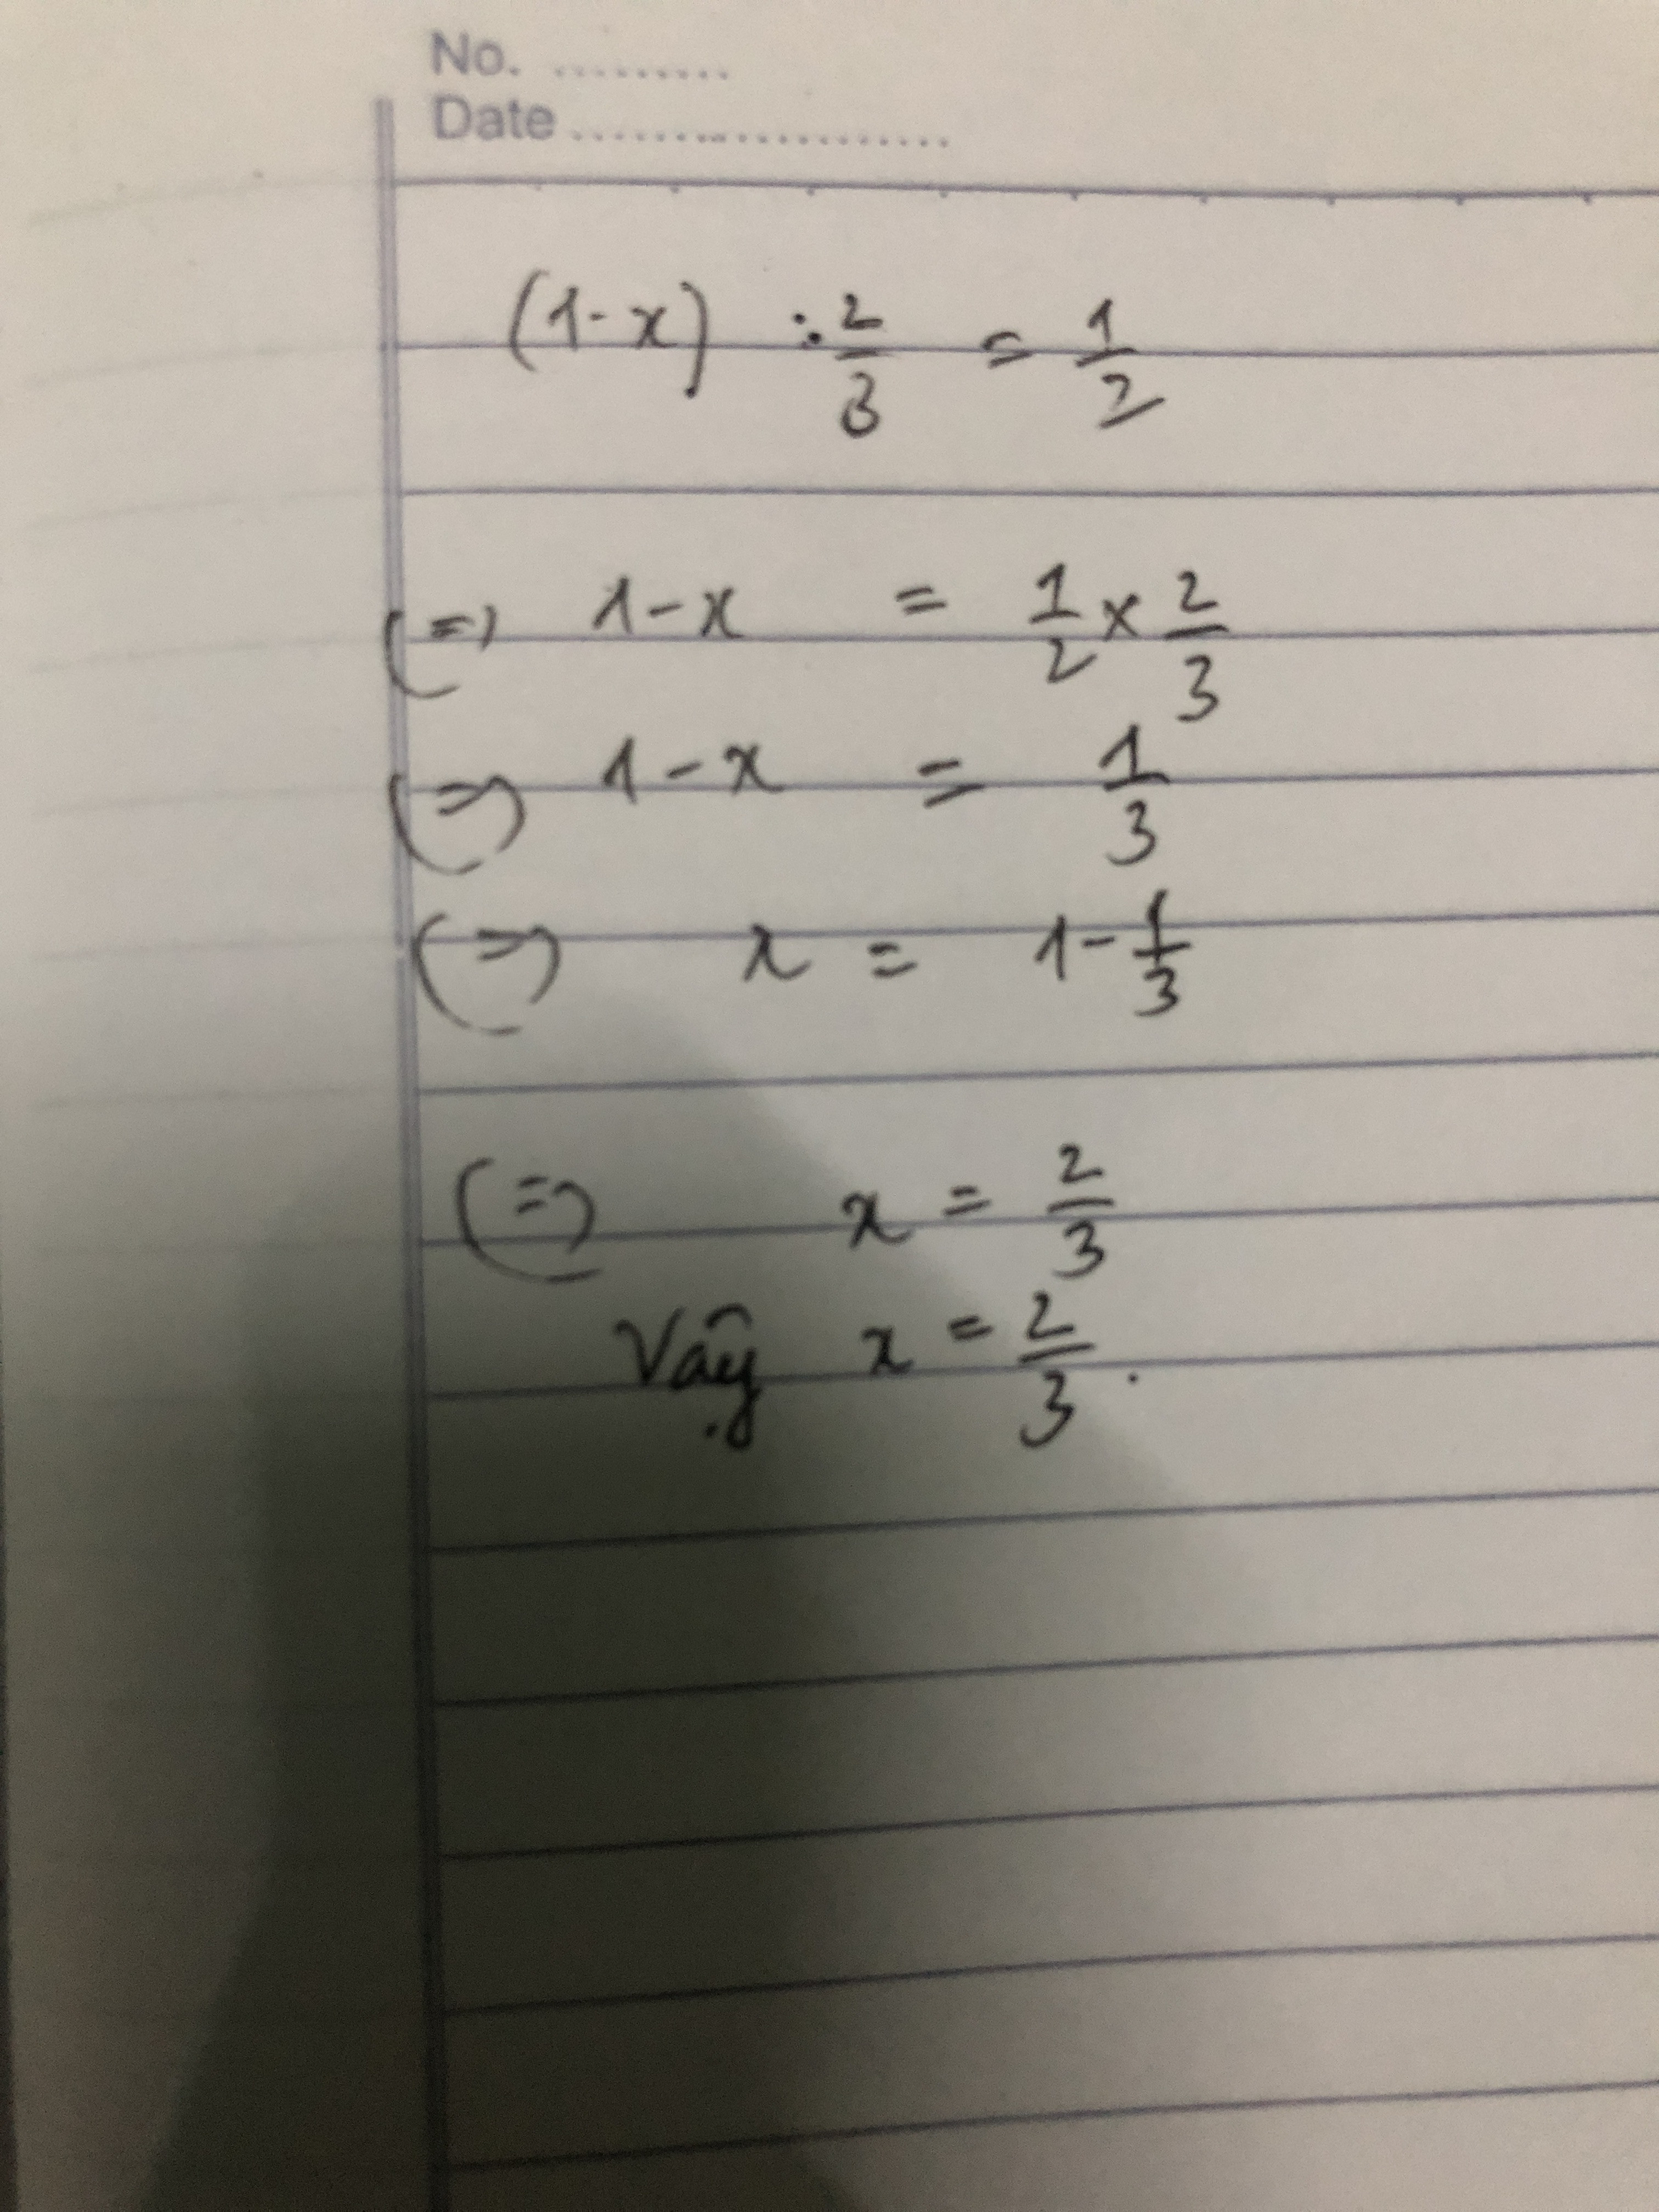 No. .........
Date .....................
(1-x) : 2/3 = 1/2
(=) 1-x = 1/2 x 2/3
(=) 1-x = 1/3
(=) x = 1-1/3
(=) x = 2/3
Vậy x = 2/3.